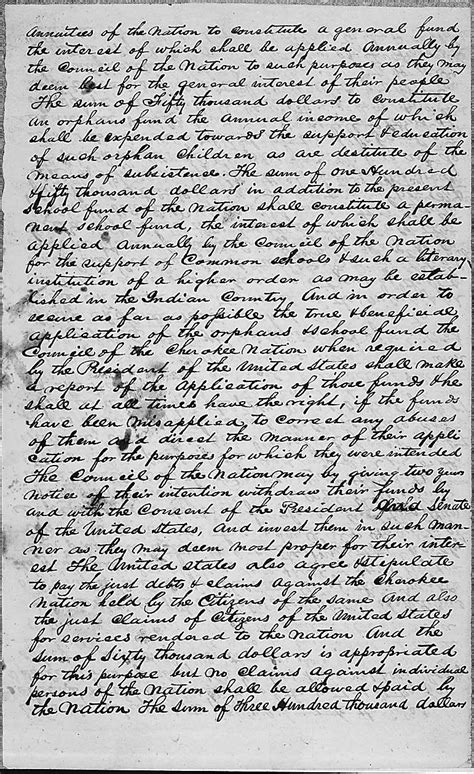 Annuities of the Nation to constitute a general fund
the interest of which shall be applied Annually by
the Council of the Nation to such purposes as they may
deem best for the general interest of their people
The sum of Fifty thousand dollars to constitute
an orphans fund the annual income of which
shall be expended towards the support & education
of such orphan children as are destitute of the
means of subsistence. The sum of one Hundred
& fifty thousand dollars in addition to the present
school fund of the Nation shall constitute a perma-
nent school fund, the interest of which shall be
applied Annually by the Council of the Nation
for the support of Common schools & such a literary
institution of a higher order as may be estab-
lished in the Indian Country And in order to
secure as far as possible the true & beneficial
application of the orphans & school fund the
Council of the Cherokee Nation when required
by the President of the United States shall make
a report of the application of those funds & he
shall at all times have the right, if the funds
have been misapplied, to correct any abuses
of them and direct the manner of their appli
cation for the purposes for which they were intended
The Council of the Nation may by giving two years
Notice of their intention withdraw their funds by
and with the Consent of the President And Senate
of the United States, And invest them in such man-
ner as they may deem most proper for their inter-
est The United states also agree & stipulate
to pay the just debts & claims against the Cherokee
Nation held by the Citizens of the same And also
the just claims of Citizens of the United States
for services rendered to the Nation And the
sum of Sixty thousand dollars is appropriated
for this purpose but no claims Against individual
persons of the Nation shall be allowed & paid by
the Nation The sum of Three Hundred thousand dollars